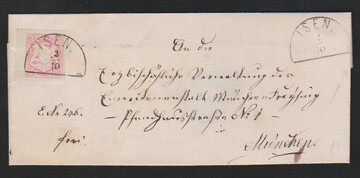 ISEN.
3
10
ISEN.
3
10
An die
Erzbischöfliche Verwaltung der
Emeritenanstalt München-Freysing
Pfandhausstraße No 1
in
München.
frei.